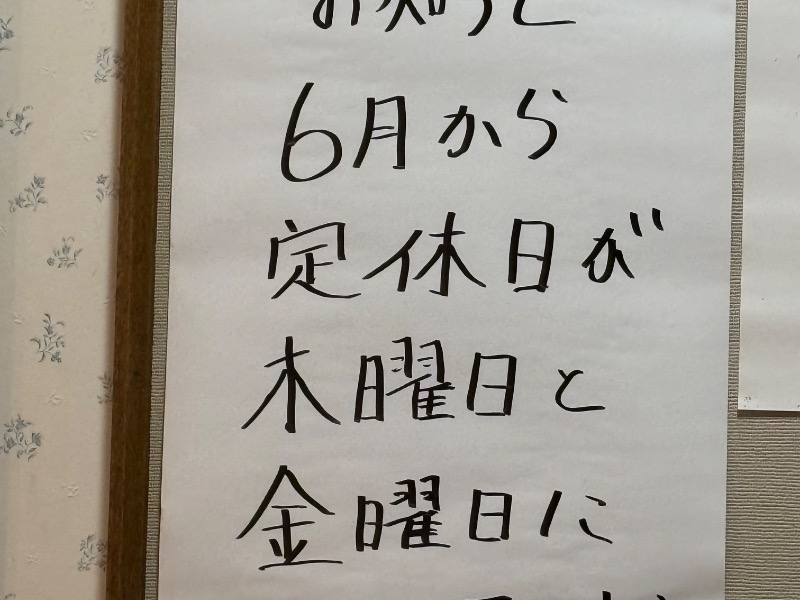 お知らせ
6月から
定休日が
木曜日と
金曜日に